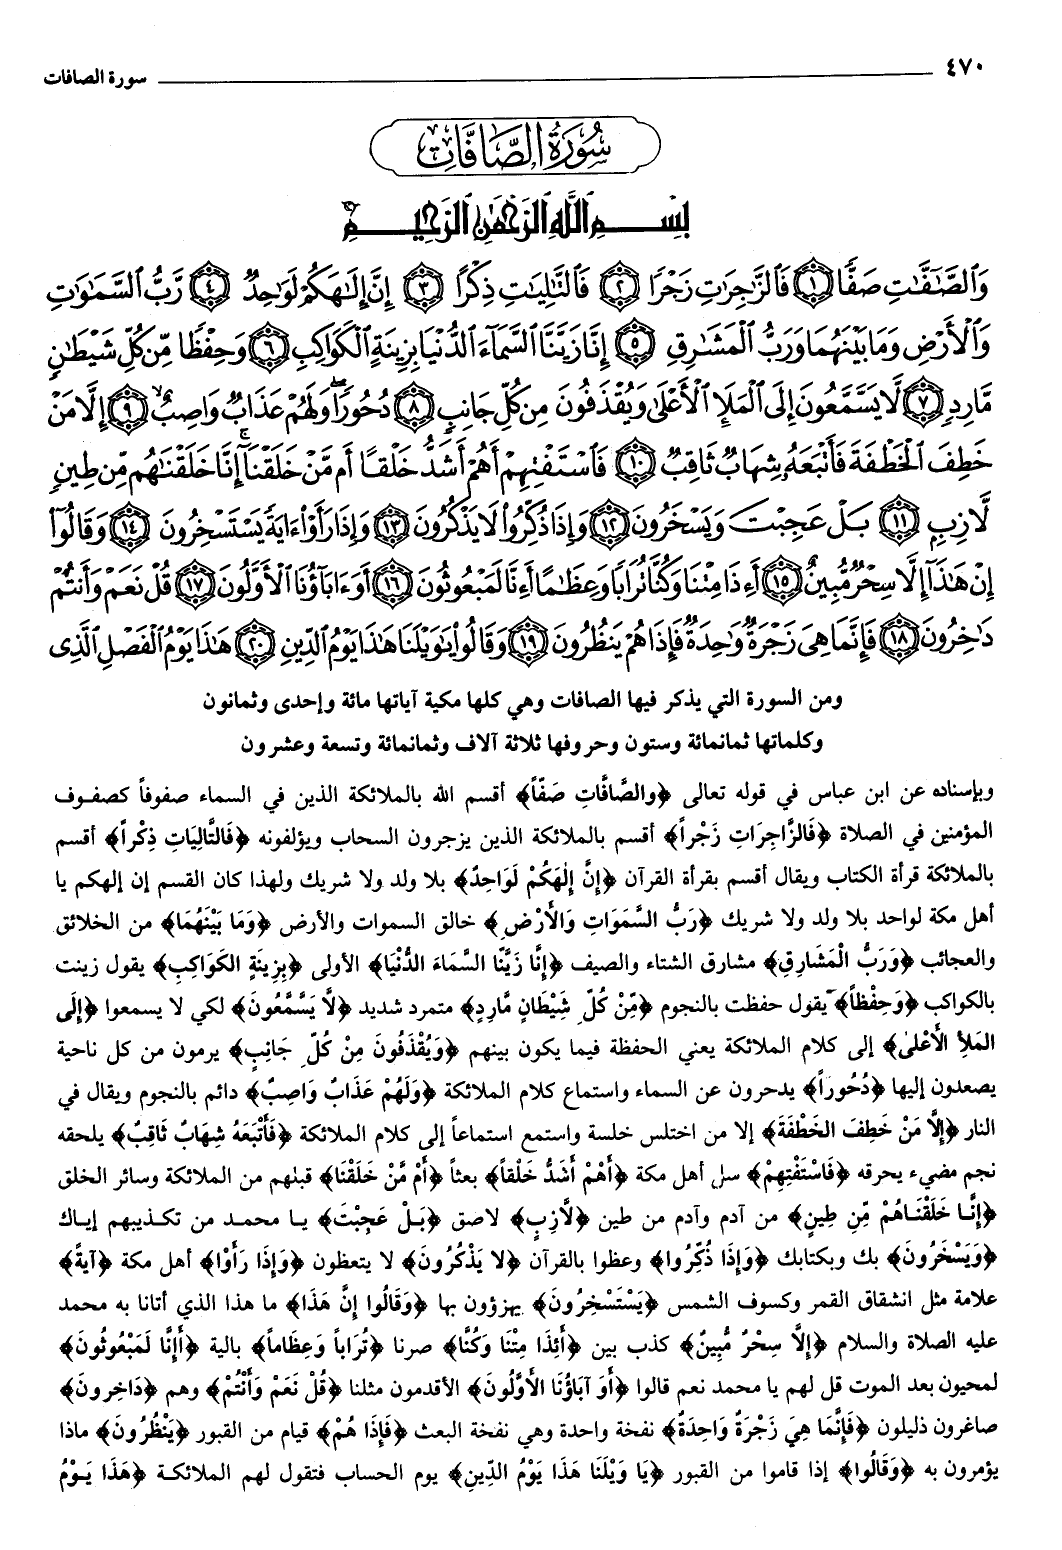 ٤٧٠ سورة الصافات
سُورَةُ الصَّافَّاتِ
بِسْمِ ٱللَّهِ ٱلرَّحْمَٰنِ ٱلرَّحِيمِ
وَٱلصَّٰٓفَّٰتِ صَفًّا ١ فَٱلزَّٰجِرَٰتِ زَجْرًا ٢ فَٱلتَّٰلِيَٰتِ ذِكْرًا ٣ إِنَّ إِلَٰهَكُمْ لَوَٰحِدٌ ٤ رَّبُّ ٱلسَّمَٰوَٰتِ
وَٱلْأَرْضِ وَمَا بَيْنَهُمَا وَرَبُّ ٱلْمَشَٰرِقِ ٥ إِنَّا زَيَّنَّا ٱلسَّمَآءَ ٱلدُّنْيَا بِزِينَةٍ ٱلْكَوَاكِبِ ٦ وَحِفْظًا مِّن كُلِّ شَيْطَٰنٍ
مَّارِدٍ ٧ لَّا يَسَّمَّعُونَ إِلَى ٱلْمَلَإِ ٱلْأَعْلَىٰ وَيُقْذَفُونَ مِن كُلِّ جَانِبٍ ٨ دُحُورًا ۖ وَلَهُمْ عَذَابٌ وَاصِبٌ ٩ إِلَّا مَنْ
خَطِفَ ٱلْخَطْفَةَ فَأَتْبَعَهُۥ شِهَابٌ ثَاقِبٌ ١٠ فَٱسْتَفْتِهِمْ أَهُمْ أَشَدُّ خَلْقًا أَم مَّنْ خَلَقْنَآ ۚ إِنَّا خَلَقْنَٰهُم مِّن طِينٍ
لَّازِبٍ ١١ بَلْ عَجِبْتَ وَيَسْخَرُونَ ١٢ وَإِذَا ذُكِّرُوا۟ لَا يَذْكُرُونَ ١٣ وَإِذَا رَأَوْا۟ ءَايَةً يَسْتَسْخِرُونَ ١٤ وَقَالُوٓا۟
إِنْ هَٰذَآ إِلَّا سِحْرٌ مُّبِينٌ ١٥ أَءِذَا مِتْنَا وَكُنَّا تُرَابًا وَعِظَٰمًا أَءِنَّا لَمَبْعُوثُونَ ١٦ أَوَءَابَآؤُنَا ٱلْأَوَّلُونَ ١٧ قُلْ نَعَمْ وَأَنتُمْ
دَٰخِرُونَ ١٨ فَإِنَّمَا هِىَ زَجْرَةٌ وَٰحِدَةٌ فَإِذَا هُمْ يَنظُرُونَ ١٩ وَقَالُوا۟ يَٰوَيْلَنَا هَٰذَا يَوْمُ ٱلدِّينِ ٢٠ هَٰذَا يَوْمُ ٱلْفَصْلِ ٱلَّذِى
ومن السورة التي يذكر فيها الصافات وهي كلها مكية آياتها مائة وإحدى وثمانون
وكلماتها ثمانمائة وستون وحروفها ثلاثة آلاف وثمانمائة وتسعة وعشرون
وبإسناده عن ابن عباس في قوله تعالى ﴿والصَّافَّاتِ صَفّاً﴾ أقسم الله بالملائكة الذين في السماء صفوفاً كصفوف
المؤمنين في الصلاة ﴿فَالزَّاجِرَاتِ زَجْراً﴾ أقسم بالملائكة الذين يزجرون السحاب ويؤلفونه ﴿فَالتَّالِيَاتِ ذِكْراً﴾ أقسم
بالملائكة قرأة الكتاب ويقال أقسم بقرأة القرآن ﴿إِنَّ إِلٰهَكُمْ لَوَاحِدٌ﴾ بلا ولد ولا شريك ولهذا كان القسم إن إلهكم يا
أهل مكة لواحد بلا ولد ولا شريك ﴿رَبُّ السَّمَوَاتِ وَالأَرْضِ﴾ خالق السموات والأرض ﴿وَمَا بَيْنَهُمَا﴾ من الخلائق
والعجائب ﴿وَرَبُّ الْمَشَارِقِ﴾ مشارق الشتاء والصيف ﴿إِنَّا زَيَّنَّا السَّمَاءَ الدُّنْيَا﴾ الأولى ﴿بِزِينَةٍ الكَوَاكِبِ﴾ يقول زينت
بالكواكب ﴿وَحِفْظاً﴾ يقول حفظت بالنجوم ﴿مِّنْ كُلِّ شَيْطَانٍ مَّارِدٍ﴾ متمرد شديد ﴿لاَّ يَسَّمَّعُونَ﴾ لكي لا يسمعوا ﴿إِلَى
المَلإِ الأَعْلىٰ﴾ إلى كلام الملائكة يعني الحفظة فيما يكون بينهم ﴿وَيُقْذَفُونَ مِنْ كُلِّ جَانِبٍ﴾ يرمون من كل ناحية
يصعدون إليها ﴿دُحُوراً﴾ يدحرون عن السماء واستماع كلام الملائكة ﴿وَلَهُمْ عَذَابٌ وَاصِبٌ﴾ دائم بالنجوم ويقال في
النار ﴿إِلاَّ مَنْ خَطِفَ الخَطْفَةَ﴾ إلا من اختلس خلسة واستمع استماعاً إلى كلام الملائكة ﴿فَأَتْبَعَهُ شِهَابٌ ثَاقِبٌ﴾ يلحقه
نجم مضيء يحرقه ﴿فَاسْتَفْتِهِمْ﴾ سل أهل مكة ﴿أَهُمْ أَشَدُّ خَلْقاً﴾ بعثاً ﴿أَمْ مَّنْ خَلَقْنَا﴾ قبلهم من الملائكة وسائر الخلق
﴿إِنَّا خَلَقْنَاهُمْ مِّن طِينٍ﴾ من آدم وآدم من طين ﴿لاَّزِبٍ﴾ لاصق ﴿بَلْ عَجِبْتَ﴾ يا محمد من تكذيبهم إياك
﴿وَيَسْخَرُونَ﴾ بك وبكتابك ﴿وَإِذَا ذُكِّرُوا﴾ وعظوا بالقرآن ﴿لا يَذْكُرُونَ﴾ لا يتعظون ﴿وَإِذَا رَأَوْا﴾ أهل مكة ﴿آيَةً﴾
علامة مثل انشقاق القمر وكسوف الشمس ﴿يَسْتَسْخِرُونَ﴾ يهزؤون بها ﴿وَقَالُوا إِنَّ هَذَا﴾ ما هذا الذي أتانا به محمد
عليه الصلاة والسلام ﴿إِلاَّ سِحْرٌ مُّبِينٌ﴾ كذب بين ﴿أَئِذَا مِتْنَا وَكُنَّا﴾ صرنا ﴿تُرَاباً وَعِظَاماً﴾ بالية ﴿أَإِنَّا لَمَبْعُوثُونَ﴾
لمحيون بعد الموت قل لهم يا محمد نعم قالوا ﴿أَوَ آبَاؤُنَا الأَوَّلُونَ﴾ الأقدمون مثلنا ﴿قُلْ نَعَمْ وَأَنْتُمْ﴾ وهم ﴿دَاخِرونَ﴾
صاغرون ذليلون ﴿فَإِنَّمَا هِيَ زَجْرَةٌ وَاحِدَةٌ﴾ نفخة واحدة وهي نفخة البعث ﴿فَإِذَا هُمْ﴾ قيام من القبور ﴿يَنْظُرُونَ﴾ ماذا
يؤمرون به ﴿وَقَالُوا﴾ إذا قاموا من القبور ﴿يَا وَيْلَنَا هَذَا يَوْمُ الدِّينِ﴾ يوم الحساب فتقول لهم الملائكة ﴿هَذَا يَوْمُ